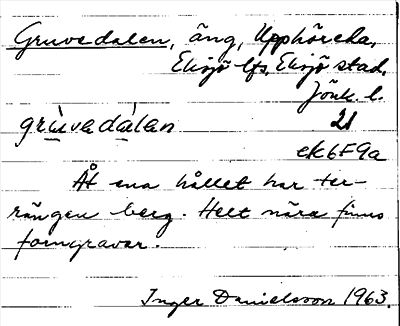 Gruvedalen, äng, Upphörela,
Eksjö lfs, Eksjö stad,
Jönk. l.
grùvadàlan 21
ek6F9a
Åt ena hållet har ter-
rängen berg. Helt nära finns
forngravar.
Inger Danielsson 1963.